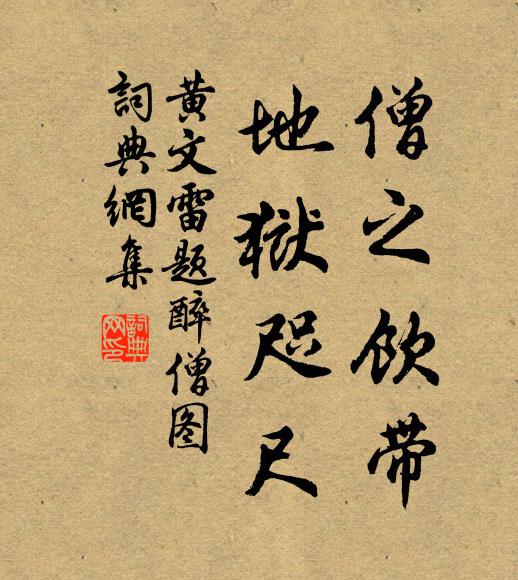 僧之飲带
地獄咫尺
黄文雷题醉僧图
詞典網集
詞典
网印